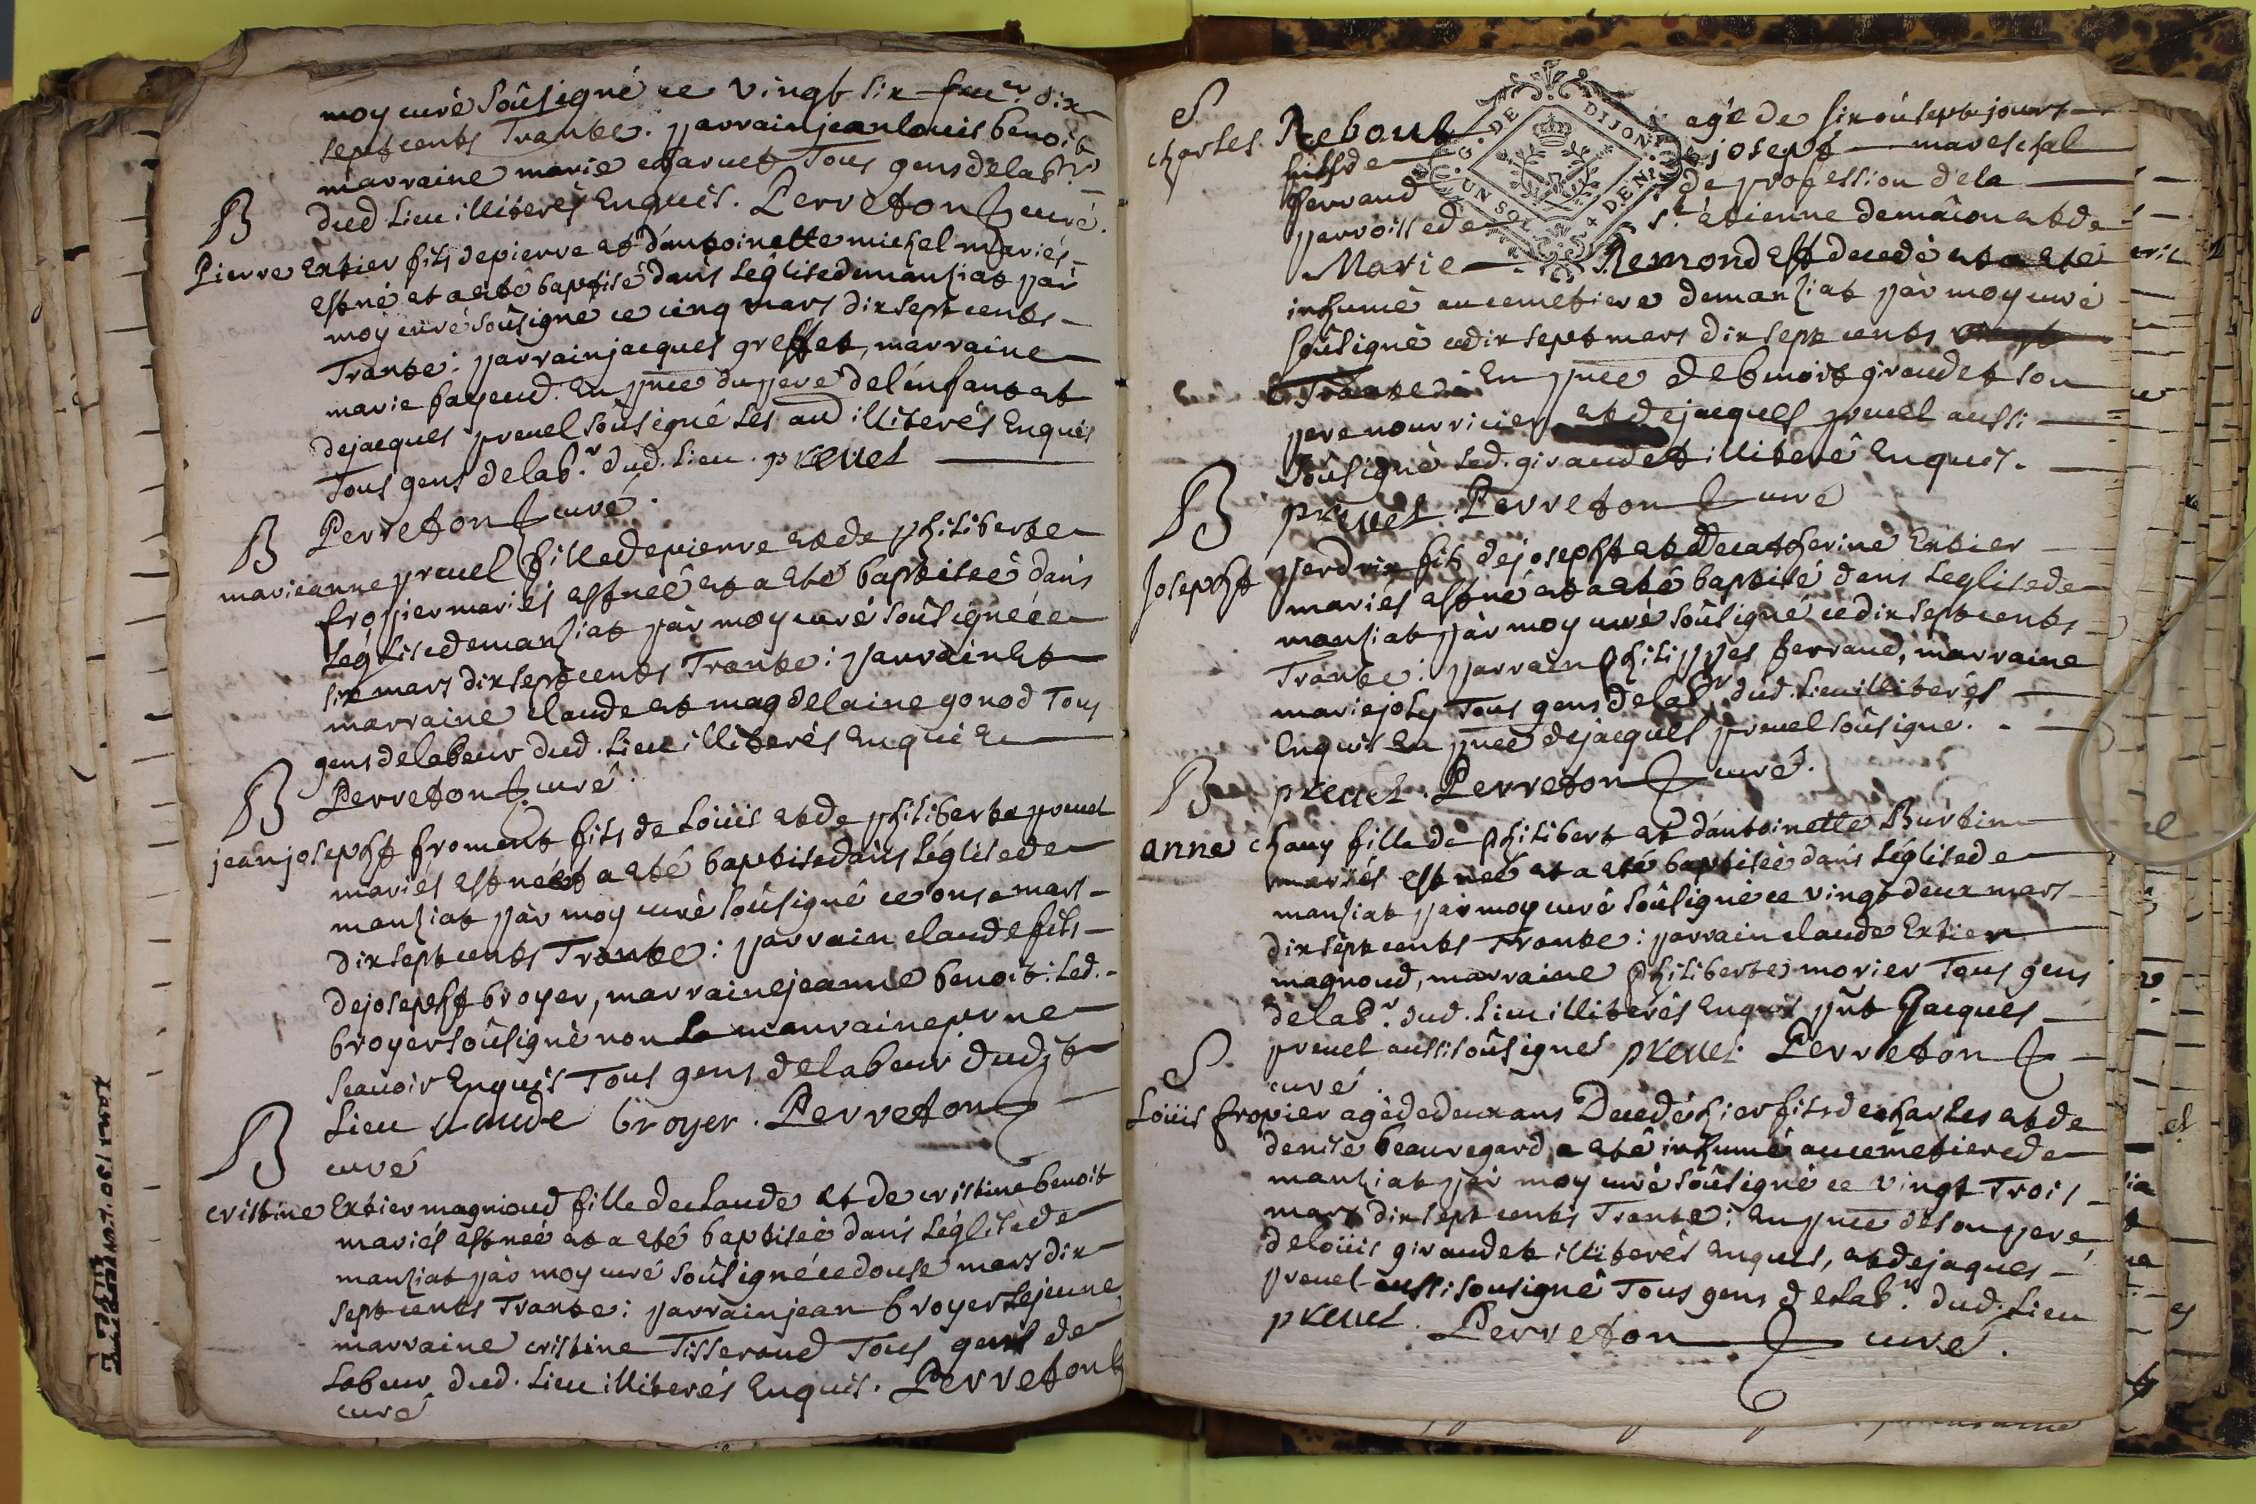 moy curé soûsigné ce vingt six feu.er dix
sept cents Trante. parrain jean louis benoit
marraine marie charuet Tous gens de lab.r
dud lieu illiterés Enquis. Perreton curé.
B
Pierre Extier fils de pierre et d'antoinette michel mariés
est né et a eté baptisé dans l'église de manziat par
moy curé soûsigné ce cinq mars dix sept cents
Trante: parrain jacques greffet, marraine
marie fayeud. En pnce du pere de l'enfant et
de jacques preuel soûsigné les aud illiterés Enquis
Tous gens de lab.r dud. lieu. preuel
Perreton curé.
B
marieanne preuel fille de pierre et de philiberte
fropier mariés est neé et a eté baptiseé dans
l'église de manziat par moy curé soûsigné ce
six mars dix sept cents Trante: parrain et
marraine claude et magdelaine gonod Tous
gens de labeur dud. lieu illiterés enquis
Perreton curé.
B
jean josepht froment fils de loüis et de philiberte preuel
mariés est né et a eté baptisé dans l'église de
manziat par moy curé soûsigné ce onse mars
dix sept cents Trante: parrain claude fils
de josepht broyer, marraine jeanne benoit: led.
broyer soûsigné non la marraine pr ne
scavoir Enquis Tous gens de labeur dudit
lieu claude broyer. Perreton
curé
B
cristine Extier magnioud fille de claude et de cristine benoit
mariés est neé et a eté baptiseé dans l'église de
manziat par moy curé soûsigné ce douse mars dix
sept cents Trante: parrain jean broyer lejeune,
marraine cristine Tisseraud Tous gens de
labeur dud. lieu illiterés Enquis. Perreton
curé
S
charles Rebout agé de six ou sept jours
fils de joseph mareschal
ferraud de profession de la
parroisse de st étienne de mâcon et de
Marie Remond est decedé et a eté
inhumé au cemetiere de manziat par moy curé
soûsigné ce dix sept mars dix sept cents vingt
Trante En pnce de benoit giraudet son
pere nourricier et de jacques preuel aussi
soûsigné led. giraudet illiteré Enquis.
preuel. Perreton curé
B
Josepht perdrix fils de josepht et de catherine Extier
mariés est né et a eté baptisé dans l'eglise de
manziat par moy curé soûsigné ce dix sept cents
Trante: parrain philippes ferraud, marraine
marie joly Tous gens de lab.r dud. lieu illiterés
Enquis En pnce de jacques preuel soûsigné.
preuel. Perreton curé.
B
anne chauy fille de philibert et d'antoinette Burtin
mariés est neé et a eté baptiseé dans l'église de
manziat par moy curé soûsigné ce vingt deux mars
dix sept cents Trante: parrain claude Extier
magnoud, marraine philiberte morier Tous gens
de lab.r dud. lieu illiterés Enquis pnt Jacques
preuel aussi soûsigné preuel Perreton
curé.
S
Loüis fropier agé de deux ans Decedé hier fils de charles et de
denise beauregard a eté inhumé au cemetiere de
manziat par moy curé soûsigné ce vingt Trois
mars dix sept cents Trante: En pnce de son pere,
de loüis giraudet illiterés enquis, et de jaques
preuel aussi soûsigné Tous gens de lab.r dud. lieu
preuel. Perreton curé.
G. DE DIJON
UN SOL 4 DEN.